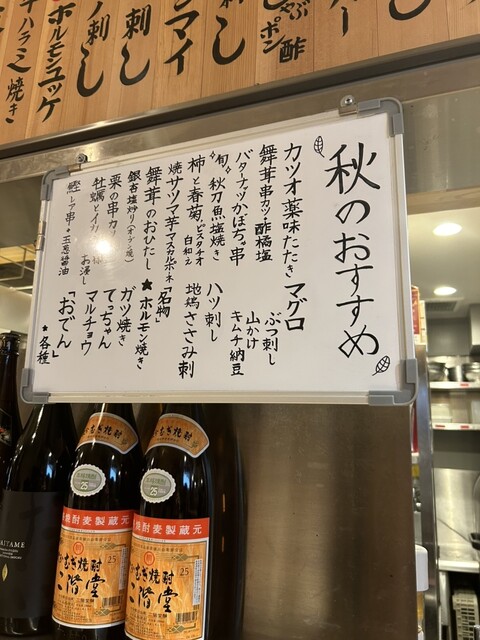 秋のおすすめ
カツオ薬味たたき
舞茸串カツ・酢橘塩
バターナッツかぼちゃ串
旬 秋刀魚塩焼き
柿と春菊ピスタチオ白和え
焼サツマ芋マスカルポーネ
舞茸のおひたし
銀杏塩炒り
栗の串カツ
牡蠣とイカ
お浸し
鰹レア串・玉葱醤油
マグロ
ぶつ刺し
山かけ
キムチ納豆
ハツ刺し
地鶏ささみ刺
「名物」
★ホルモン焼き
ガツ焼き
てっちゃん
マルチョウ
「おでん」
★各種
ハラミ焼き
ホルモンユッケ
刺し
刺し
マイ
し
ポン酢
し
むぎ焼酎
25
焼酎麦製蔵元
むぎ焼酎
二階堂
25
むぎ焼酎
25
焼酎麦製蔵元
むぎ焼酎
二階堂
25